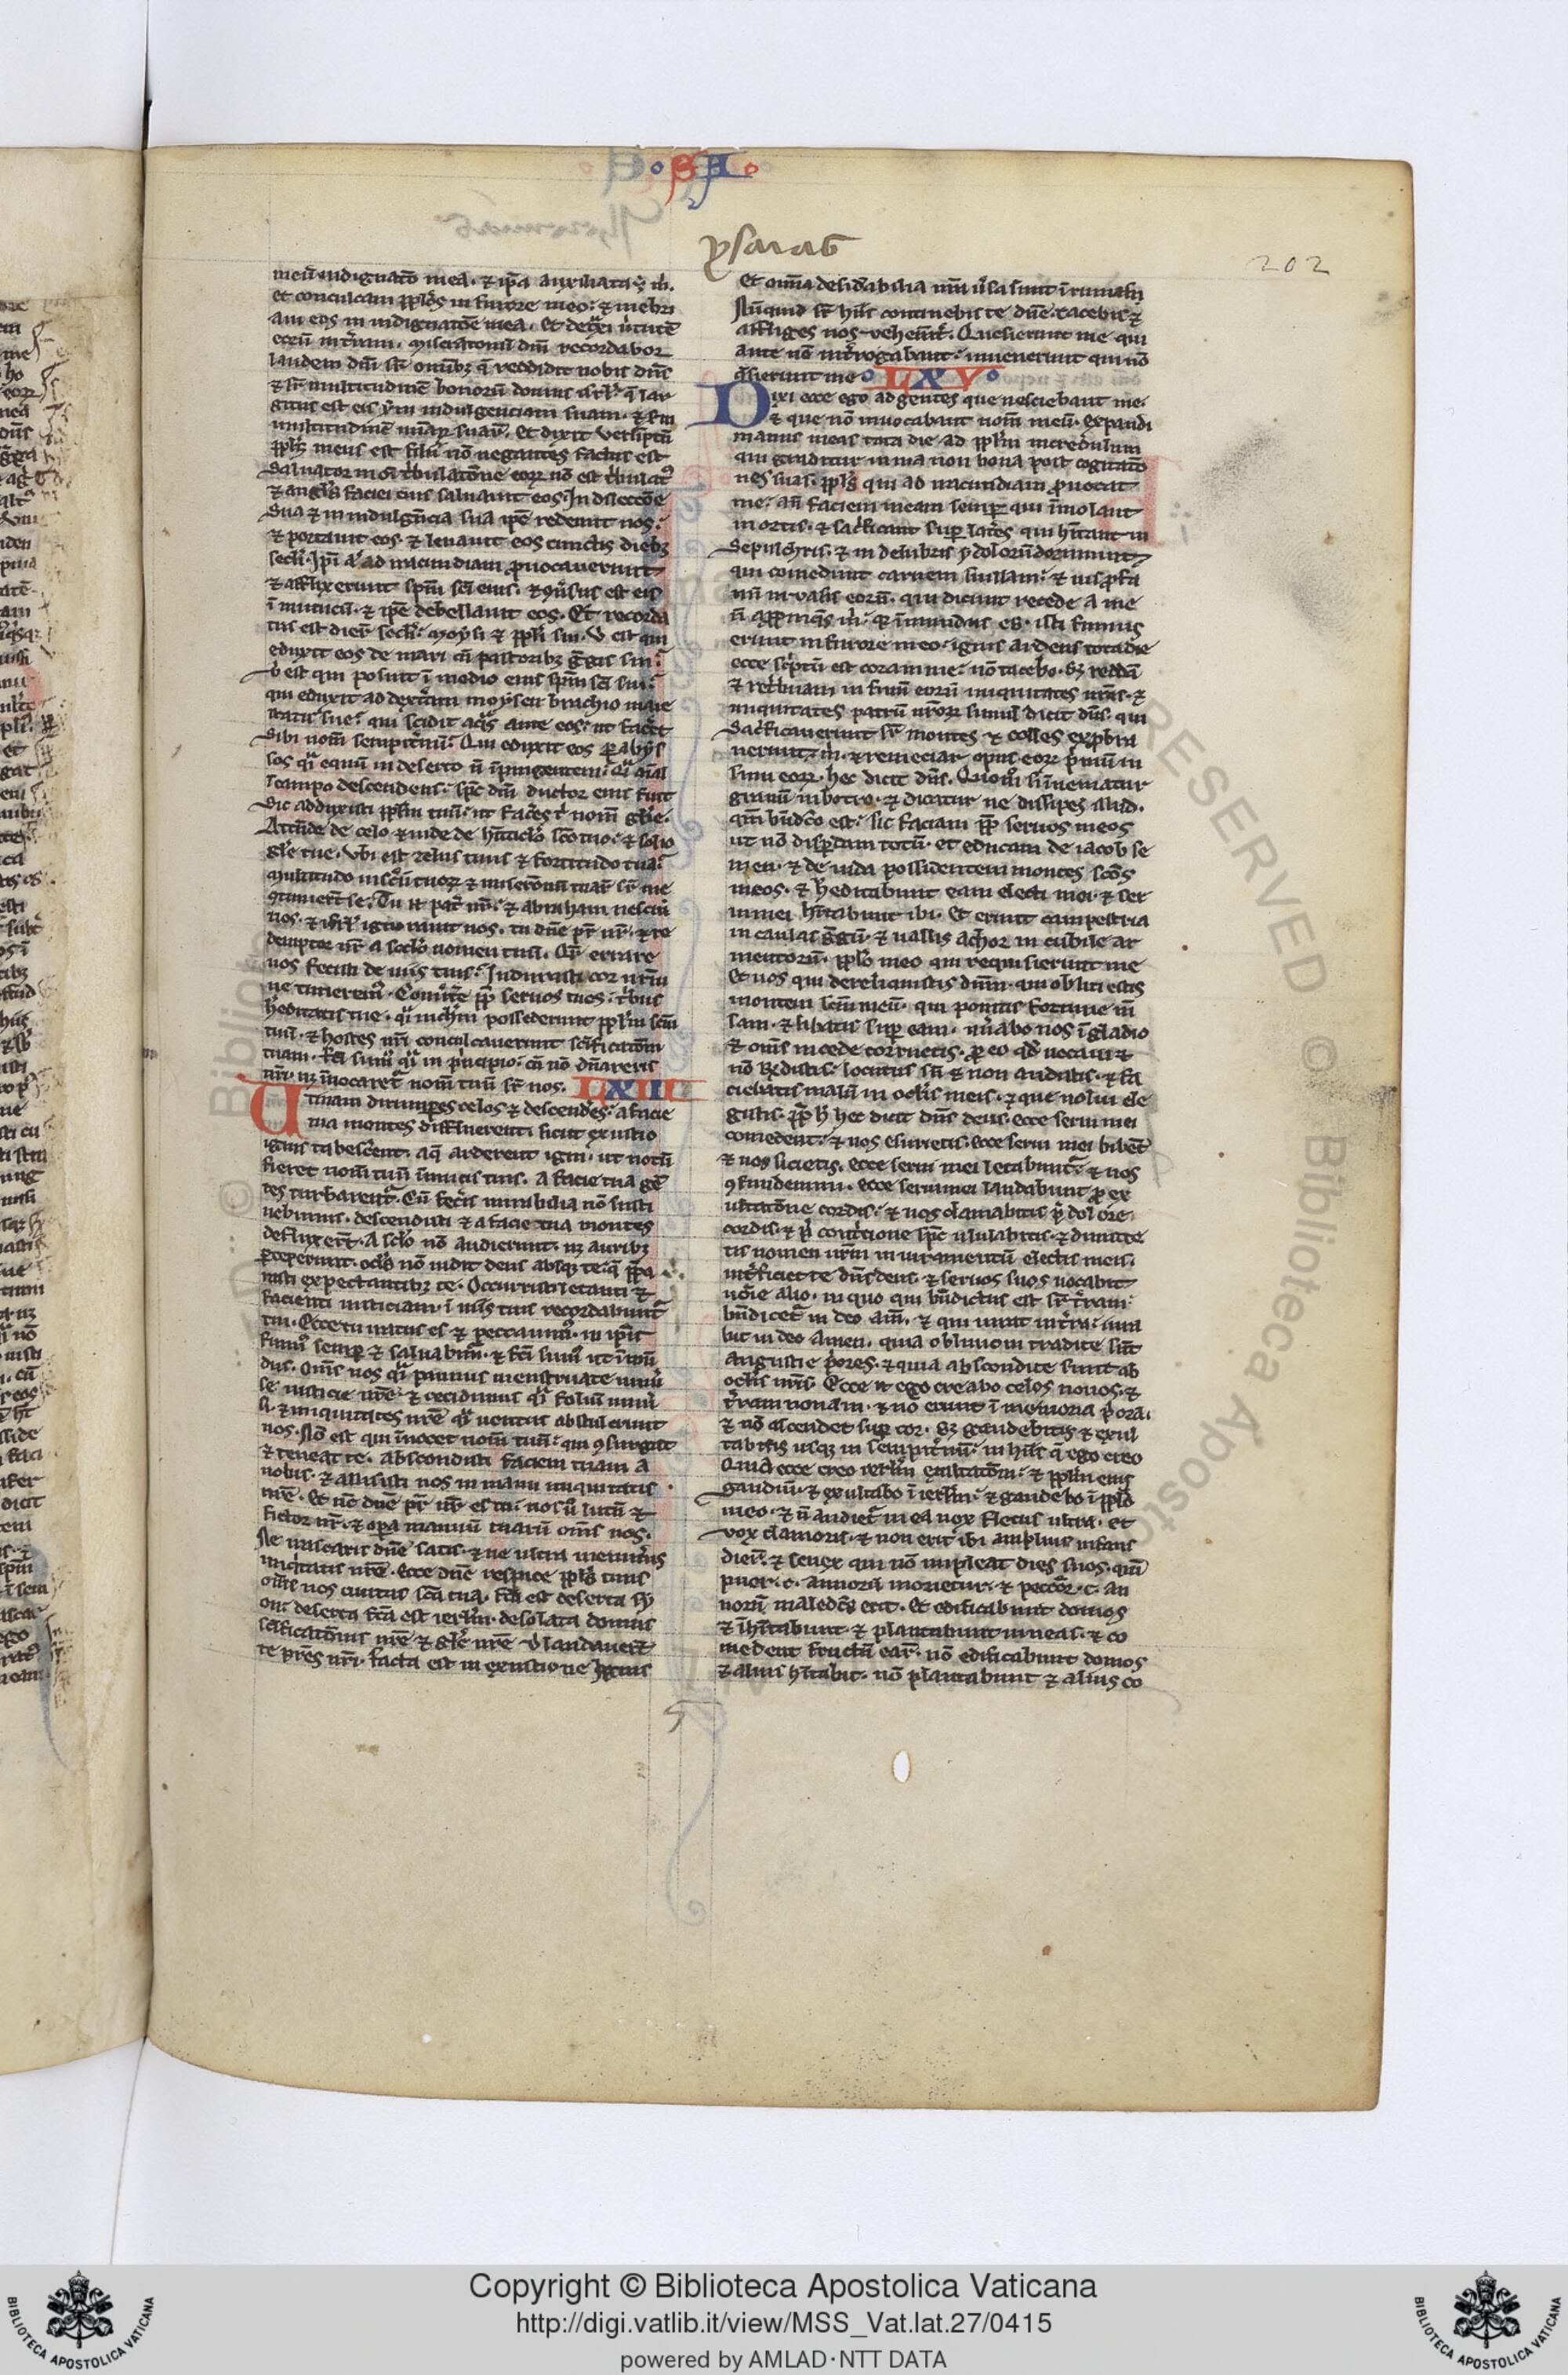 ysaias
202
meū indignatō mea· ⁊ ip̄a auxiliata ē m̄.
et conculcaui ppl̄os in furore meo: ⁊ inebri
aui eos in indignatōe mea. et det̄xi ūtutē
eorū in t̄ram. miserationū dn̄i recordabor
laudem dn̄i sr̄ om̄ibȝ q̄ reddidit nobis dn̄s
⁊ sr̄ multitudinē bonorū domus isrl̄· q̄ lar
gitus est eis s̄m indulgenciam suam· ⁊ sm̄
multitudinē mīaꝝ suaꝝ. et dixit verūptn̄
ppl̄s meus est filii nō negantes factus est
saluator in oī t̄bulatōne eoꝝ nō est t̄bulatꝰ
⁊ angl̄s faciei eius saluauit eos. In dilectōe
sua ⁊ in indulgn̄cia sua ip̄e redemit nos:
⁊ portauit eos· ⁊ leuauit eos cunctis diebȝ
secl̄i. Ip̄i aū ad iracundiam ꝓuocauerunt
⁊ afflixerunt sp̄m sc̄i eius. ⁊ ꝯūsus est eis
ī inimicū· ⁊ ip̄e debellauit eos. Et recorda
tus est dierū secl̄i: moysi ⁊ ppl̄i sui. v̄ est qui
eduxit eos de mari cū pastoribȝ ḡgis sui:
v̄ est qui posuit ī medio eius sp̄m sc̄i sui:
qui eduxit ad dext̄am moysen brachio maie
statis sue: qui scidit aq̄s ante eos: ut fac̄et
sibi nom̄ sempit̄nū: Qui eduxit eos ꝑ abys
sos q̄i equū in deserto n̄ īpingentem: q̄i aīal
ī campo descendens: sp̄c dn̄i ductor eius fuit
Sic adduxisti ppl̄m tuū: ut fac̄es t̄ nom̄ gl̄ie.
Attēde de celo ⁊ uide de hītac̄lo sc̄o tuo: ⁊ solio
gl̄e tue. Vbi est zelus tuus ⁊ fortitudo tua:
multitudo uisc̄ū tuoꝝ ⁊ miserōnū tuaꝝ sr̄ me
ꝯtinuer̄t se: Tu n̄ pat̄ nr̄: ⁊ abraham nesciuit
nos· ⁊ isrl̄ ignorauit nos. tu dn̄e pr̄ nr̄· ⁊ re
demptor nr̄ a secl̄o nomen tuū. Qr̄ errare
nos fecisti de uiis tuis: Indurasti cor nr̄m
ne timerem̄: Conūt̄e ꝓp̄ seruos tuos: t̄bus
h̄editatis tue· q̄i nich̄m possederunt ppl̄m sc̄m
tuū· ⁊ hostes nr̄i conculcauerunt sc̄ificatōem
tuam· fc̄i sumꝰ q̄i in p̄ncipio: cū nō dn̄areris
nr̄i· nȝ īuocaret̄ nom̄ tuū sr̄ nos. LXIIII
Utinam dirumpēs celos ⁊ descendēs: a facie
tua montes diffluerent: sicut exustio
ignis tabescent. aq̄ arderent igni· ut notū
fieret nom̄ tuū inimicis tuis. A facie tua gē
tes turbarent̄. Cū fec̄is mirabilia nō susti
nebimus. descendisti ⁊ a facie tua montes
defluxer̄t. A sc̄lo nō audierunt· nȝ auribȝ
ꝑceperunt. ocl̄s nō uidit deus absqȝ te: q̄ p̄ꝑa
uisti expectantibȝ te. Occurristi letanti ⁊
facienti iusticiam: ī uiis tuis recordabunt̄
tui. Ecce tu iratus es ⁊ peccauimꝰ. in ip̄is
fuimꝰ semꝑ ⁊ saluabim̄. ⁊ fc̄i sumꝰ ut īmū
dus· om̄s nos q̄i pannus menstruate uniū
se iusticie nr̄e: ⁊ cecidimus q̄i folium uniū
si. ⁊ iniquitates nr̄e q̄i uentus abstulerunt
nos· Nō est qui īuocet nom̄ tuū: qui ꝯsurgat
⁊ teneat te. abscondisti faciem tuam a
nobis· ⁊ allisisti nos in manu iniquitatis
nr̄e. Et nc̄ dn̄e pr̄ nr̄ es tu: nos ū lutū ⁊
fictor nr̄· ⁊ opa manuū tuarū om̄s nos.
Ne irascaris dn̄e satis: ⁊ ne ultra memineris
iniq̄tatis nr̄e· ecce dn̄e respice ppl̄s tuus
om̄s nos ciuitas sc̄a tua· fc̄a est deserta sy
on: deserta fc̄a est ierl̄m· desolata domus
sc̄ificatōnis nr̄e ⁊ gl̄e nr̄e v̄ laudauer̄t
te pr̄es nr̄i· facta est in exustione ignis
et oīa desid̄abilia nr̄a ūsa sunt ī ruinas
Nūquid sr̄ hiis continebis te dn̄e: tacebis ⁊
affliges nos vehemēt̄. Quesierunt me qui
ante nō int̄rogabant: inuenerunt qui nō
q̄sierunt me LXV
Dixi ecce ego ad gentes que nesciebant me·
⁊ que nō inuocabant nom̄ meū. expandi
manus meas tota die ad ppl̄m incredulum
qui graditur in uia non bona post cogitatō
nes suas: ppl̄s qui ad iracundiam ꝓuocat
me: an̄ faciem meam semꝑ· qui īmolant
in ortis· ⁊ sac̄ficant suꝑ lat̄es: qui hītant in
sepulchris· ⁊ in delubris ydoloꝝ dormiunt
qui comedunt carnem suillam: ⁊ ius ꝓfa
nū in vasis eorū. qui dicunt recede a me
n̄ appinq̄s m̄: qr̄ īmundus es· isti fumus
erunt in furore meo: ignis ardens tota die
ecce sc̄ptū est coram me: nō tacebo. sȝ reddā
⁊ ret̄buam in sinū eorū iniquitates ur̄as· ⁊
iniquitates patrū ur̄oꝝ simul dicit dn̄s. qui
sac̄ficauerunt sr̄ montes ⁊ sr̄ colles exꝓbra
uerunt m̄· ⁊ remeciar opus eoꝝ p̄mū in
sinu eoꝝ. hec dicit dn̄s. Quom̄ si īueniatur
granū in botro· ⁊ dicatur ne dissipes illud.
qm̄ bn̄dco̅ est: sic faciam ꝓp̄ seruos meos
ut nō disꝑdam totū. et educam de iacob se
men· ⁊ de iuda possidentem montes sc̄os
meos. ⁊ h̄editabunt eam electi mei· ⁊ ser
ui mei hītabunt ibi· Et erunt campestria
in caulas ḡgū· ⁊ uallis achor in cubile ar
mentorū· ppl̄o meo qui requisierunt me
Et uos qui dereliquistis dn̄m· qui obliti estis
montem sc̄m meū· qui ponitis fortune m̄
sam· ⁊ libatis suꝑ eam· nūabo uos ī gladio
⁊ om̄s in cede corruetis. ꝓ eo qd̄ uocaui ⁊
nō r̄ndistis: locutus su̅ ⁊ non audistis· ⁊ fa
ciebatis malū in ocl̄is meis· ⁊ que nolui ele
gistis. ꝓp̄ h̄ hec dicit dn̄s deus. ecce serui mei
comedent: ⁊ uos esurietis. ecce serui mei bibēt
⁊ uos sicietis. ecce serui mei letabunt̄: ⁊ uos
ꝯfundemini. ecce serui mei laudabunt ꝓ ex
ultatōne cordis: ⁊ uos clamabitis p̄ dolore
cordis· ⁊ p̄ cont̄cione sp̄c ululabitis. ⁊ dimitte
tis nomen ur̄m in iuramentū electis meis.
int̄ficiet te dn̄s deus· ⁊ seruos suos uocabit
noīe alio· in quo qui bn̄dictus est sr̄ t̄ram:
bn̄dicet̄ in deo am̄. ⁊ qui iurat in t̄ra: iura
bit in deo amen. quia obliuioni tradite sūt
angustie p̄ores. ⁊ quia abscondite sunt ab
ocl̄is nr̄is. Ecce n̄ ego creabo celos nouos· ⁊
t̄ram nouam· ⁊ nō erunt ī memoria p̄ora.
⁊ nō ascendet suꝑ cor. sȝ gaudebitis ⁊ exul
tabitis usqȝ in sempit̄nū: in hiis q̄ ego creo
Quia ecce creo ierl̄m exultatōem: ⁊ ppl̄m eius
gaudiū· ⁊ exultabo ī ierl̄m: ⁊ gaudebo ī ppl̄o
meo. ⁊ n̄ audiet̄ in ea uox fletus ultra. et
vox clamoris. ⁊ non erit ibi amplius infans
dierū: ⁊ senex qui nō impleat dies suos. qm̄
puer ·c· annorū morietur: ⁊ pecc̄or ·c· an
norū maledc̄s erit. Et edificabunt domos
⁊ īhītabunt ⁊ plantabunt uineas· ⁊ co
medent fructū eaꝝ: nō edificabunt domos
⁊ alius hītabit· nō plantabunt ⁊ alius co
Copyright © Biblioteca Apostolica Vaticana
http://digi.vatlib.it/view/MSS_Vat.lat.27/0415
powered by AMLAD·NTT DATA